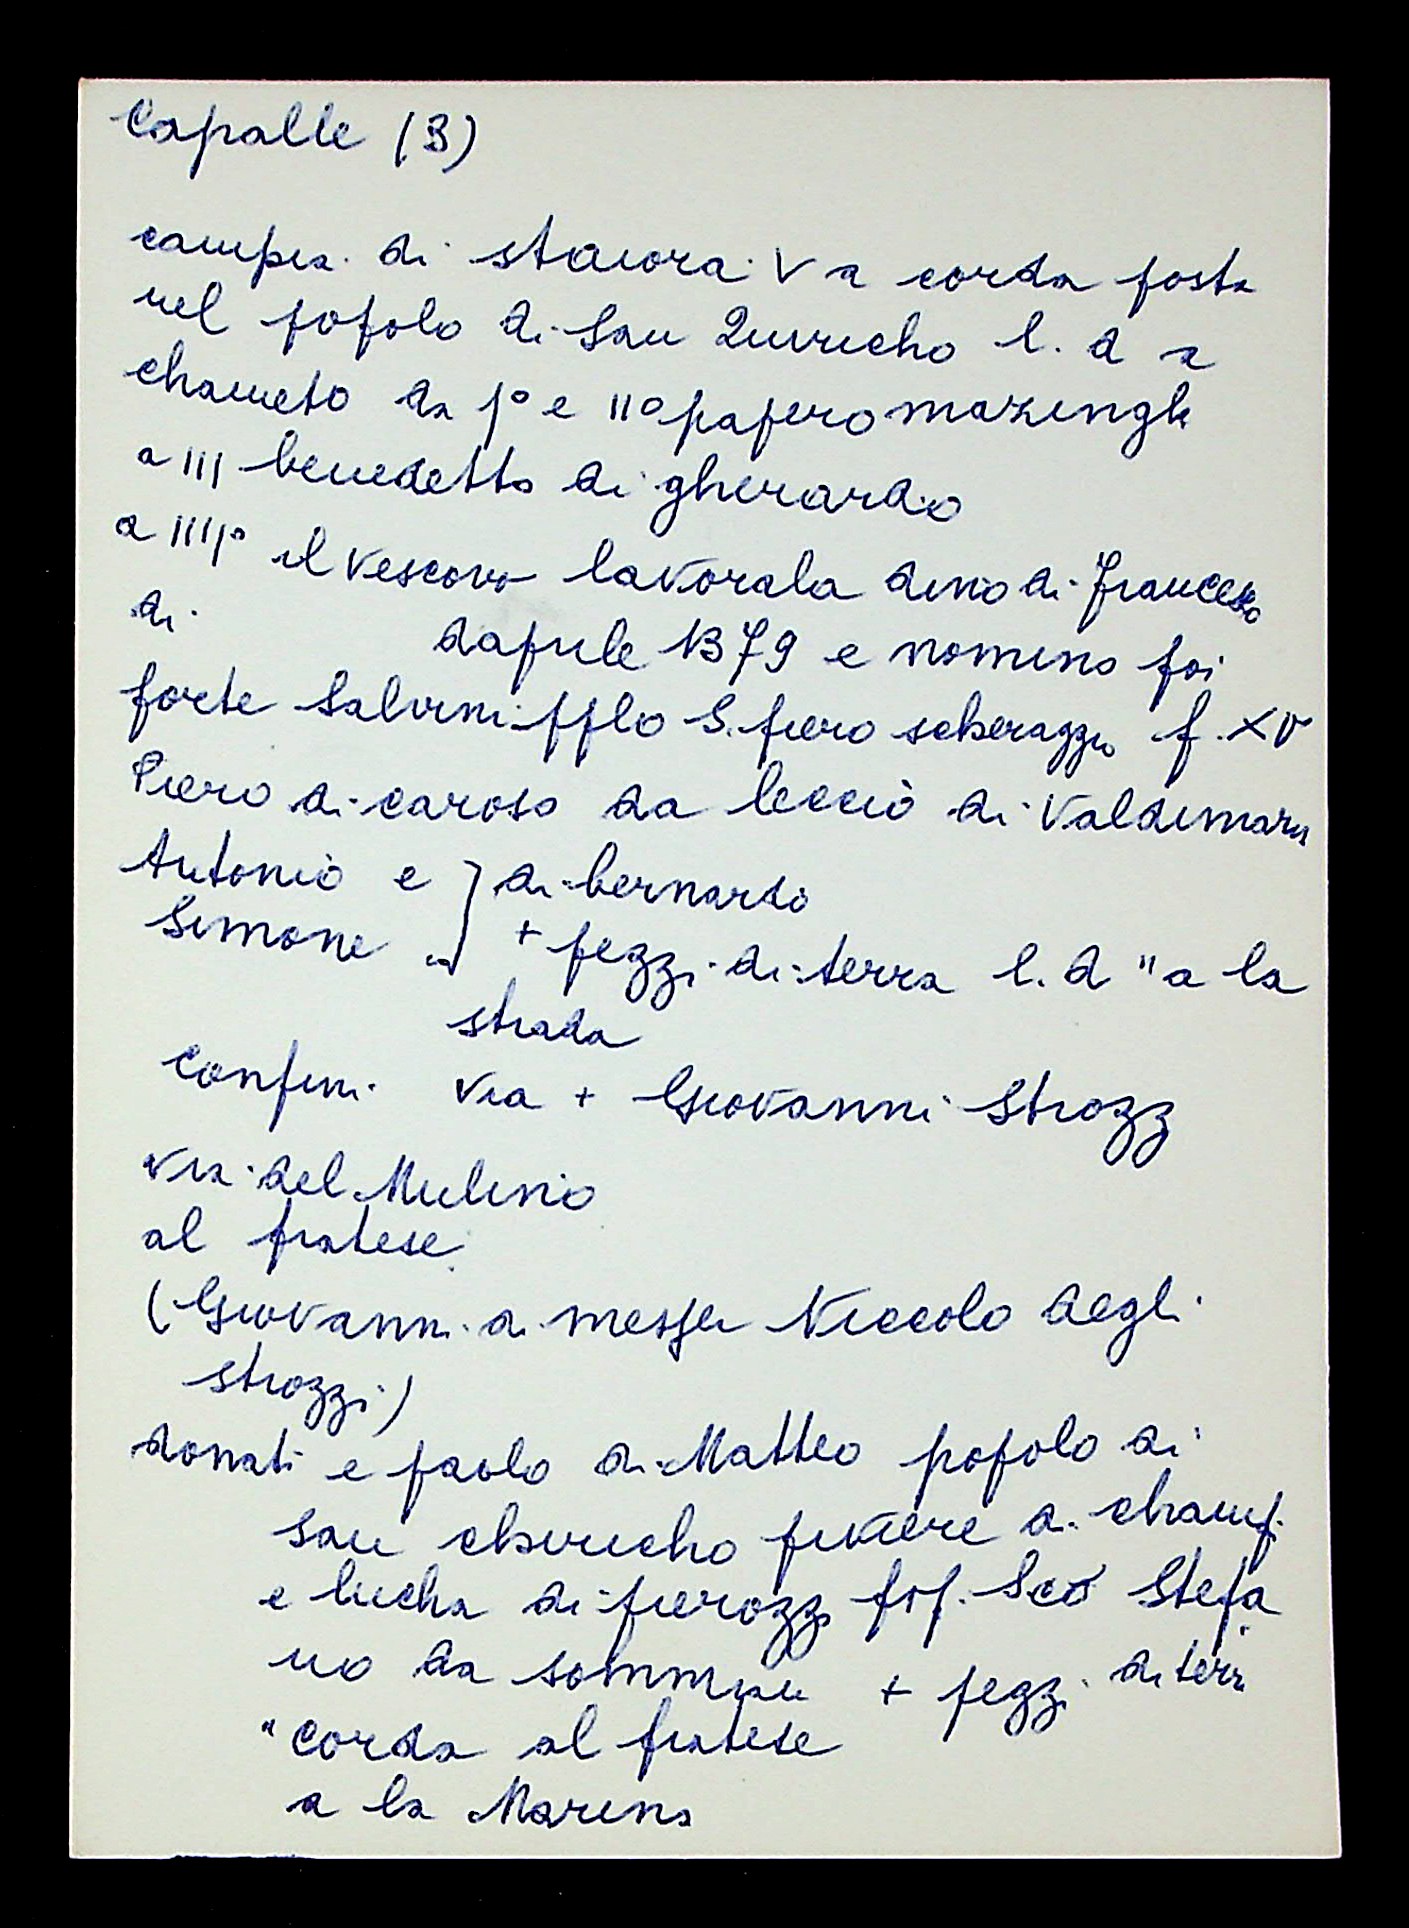 Capalle (3)
campia di staiora V a corda posta
nel popolo di San Quiricho l. d a
channeto da 1º e IIº papero mazingh
a III benedetto di gherardo
a IIIIº il vescovo lavorala dino di Francesco
di daprile 1379 e nomino poi
forte Salvini pplo S. piero scheraggio f. XV
Piero di caroso da leccio di Valdimarin
Antonio e ] di bernardo
Simone + pezzi di terra l. d " a la
strada
Confini via + Giovanni Strozz
via del Mulino
al pratese
(Giovanni di messer Niccolo degli
strozzi)
donati e paolo di Matteo popolo di
San chiricho piviere di champ.
e lucha di pierozzo pop. Sco Stefa
no da sommaia + pezzi di terr
" corda al pratese
a la Marina